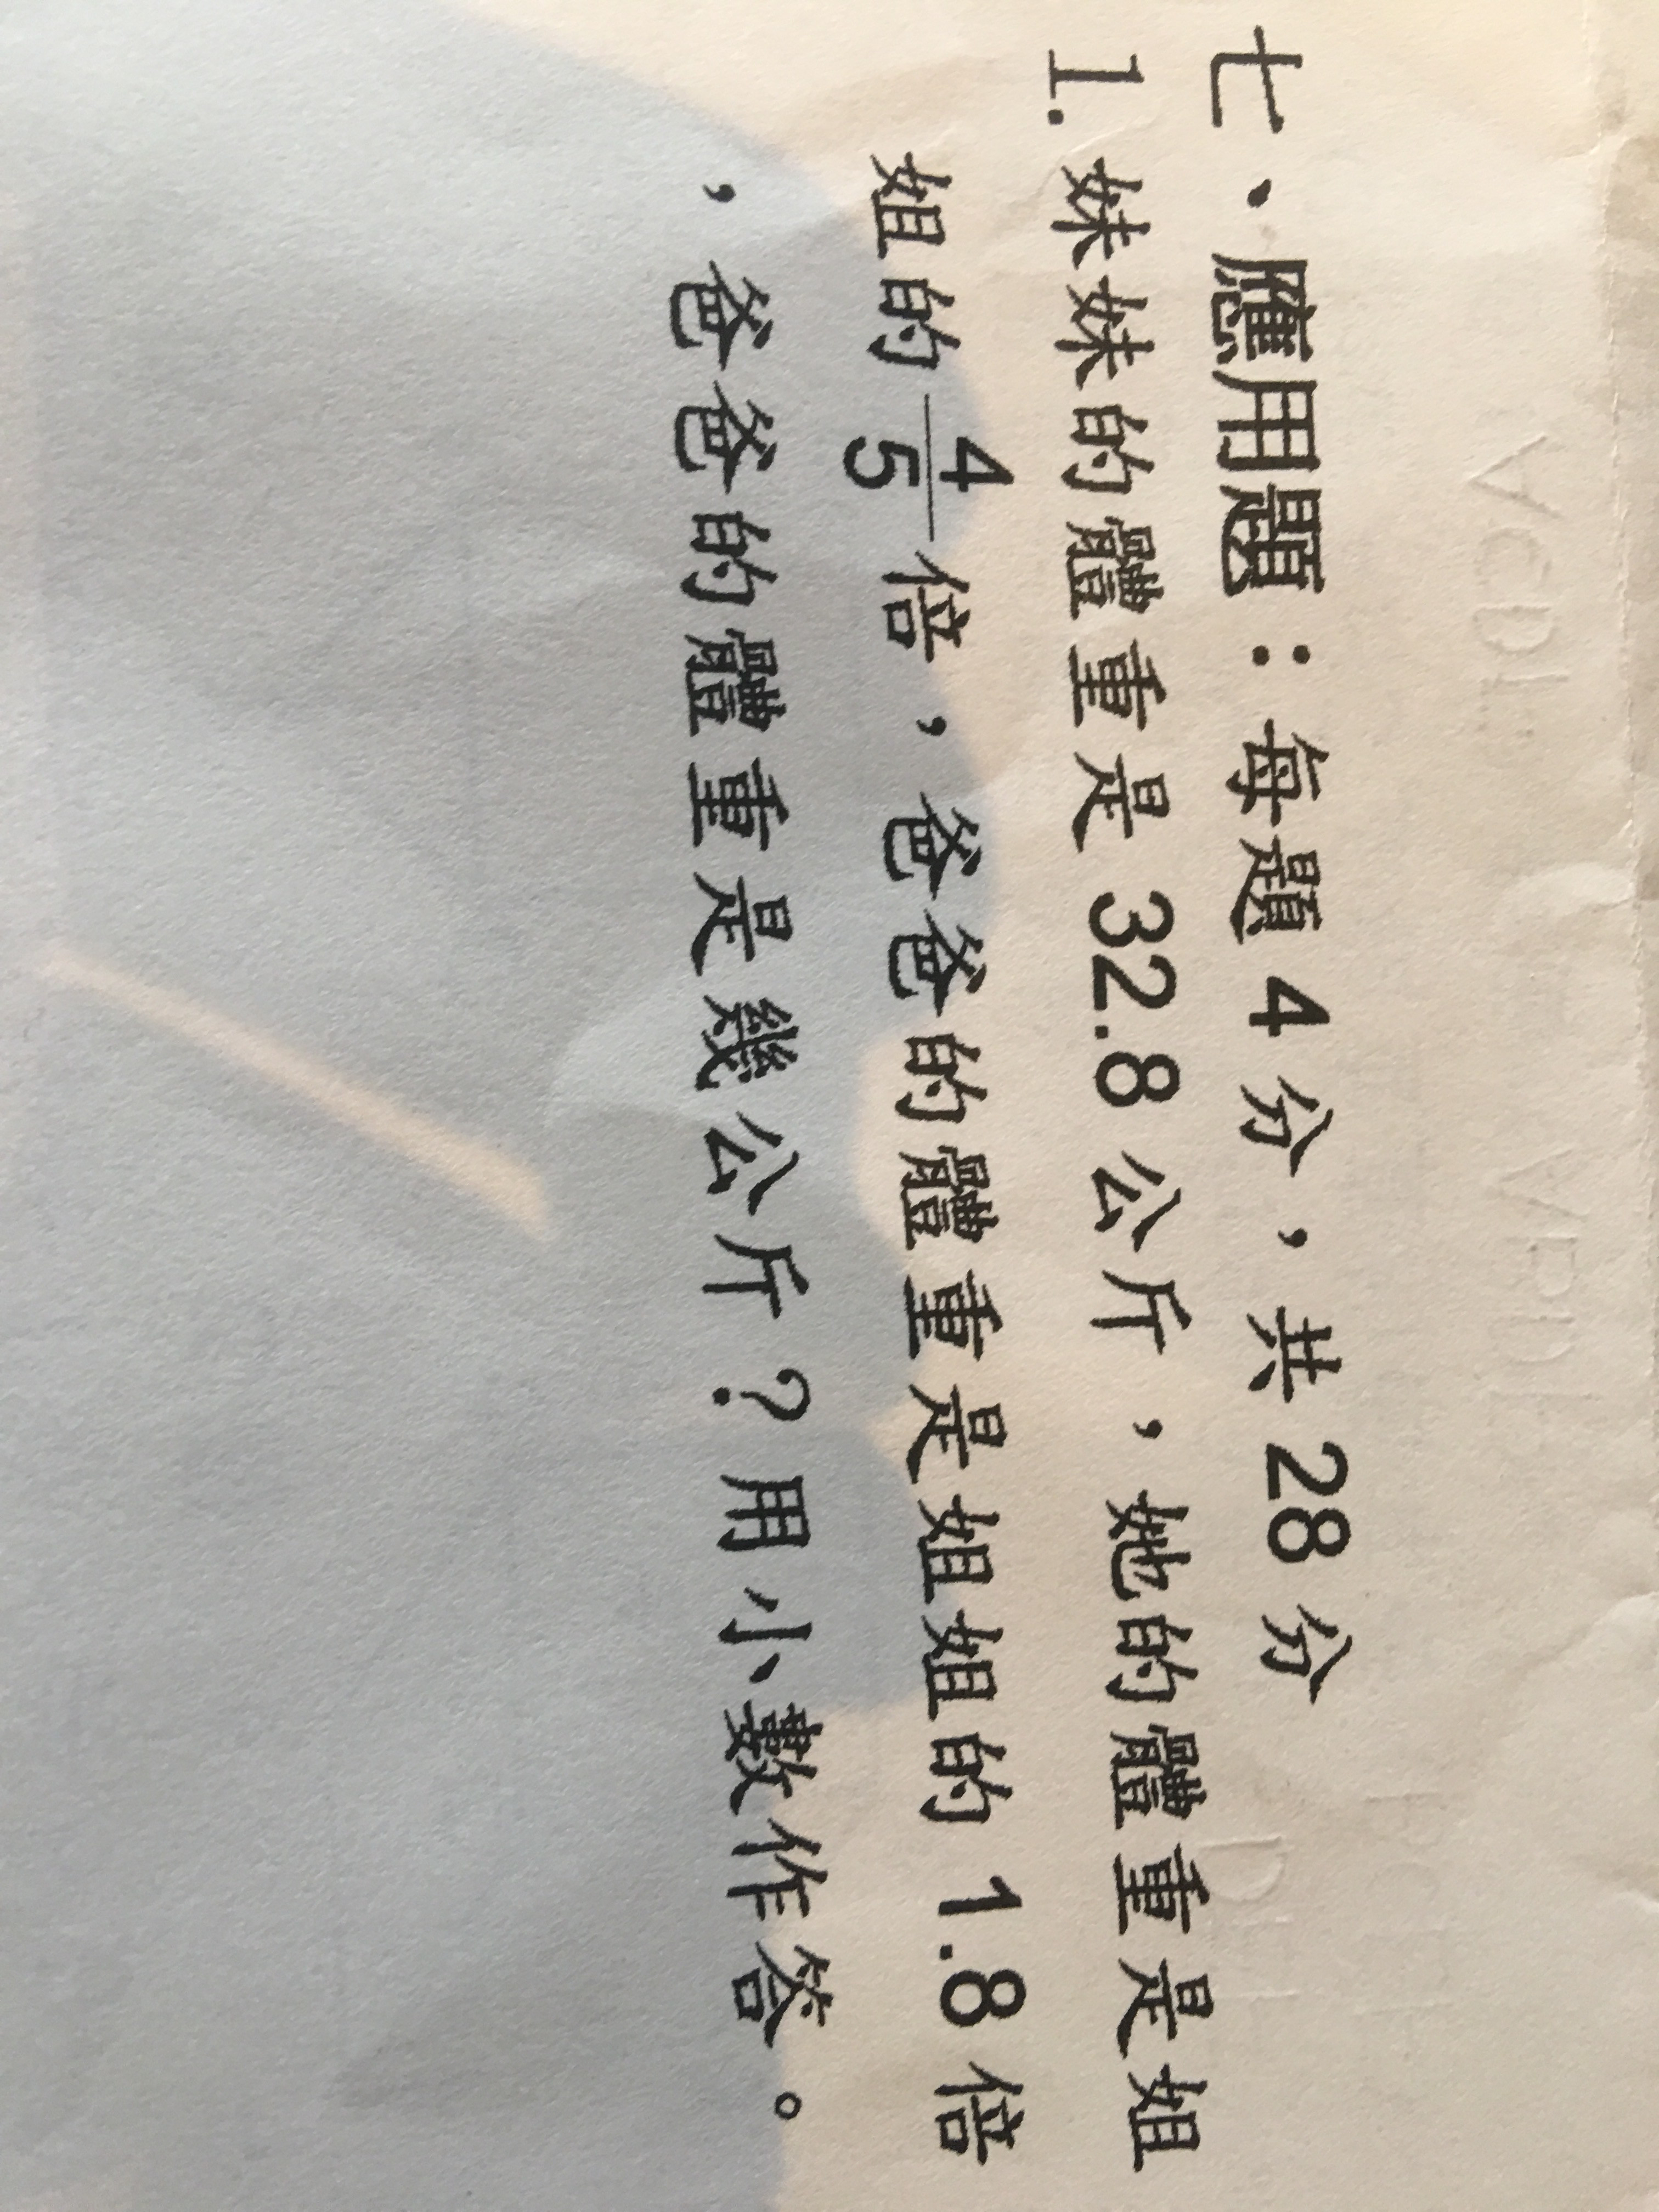 七、應用題：每題 4 分，共 28 分
1. 妹妹的體重是 32.8 公斤，她的體重是姐
姐的 4/5 倍，爸爸的體重是姐姐的 1.8 倍
，爸爸的體重是幾公斤？用小數作答。